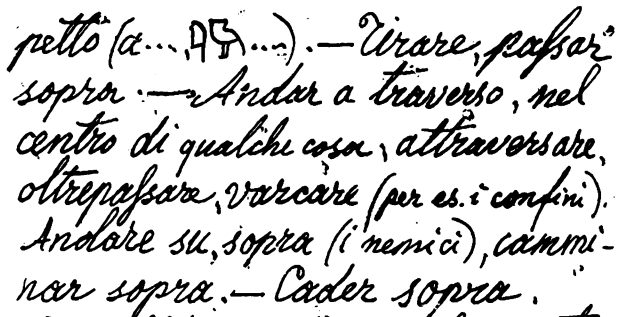 petto (a..., ...). — Tirare, passar
sopra. — Andar a traverso, nel
centro di qualche cosa, attraversare,
oltrepassare, varcare (per es. i confini).
Andare su, sopra (i nemici), cammi-
nar sopra. — Cader sopra.